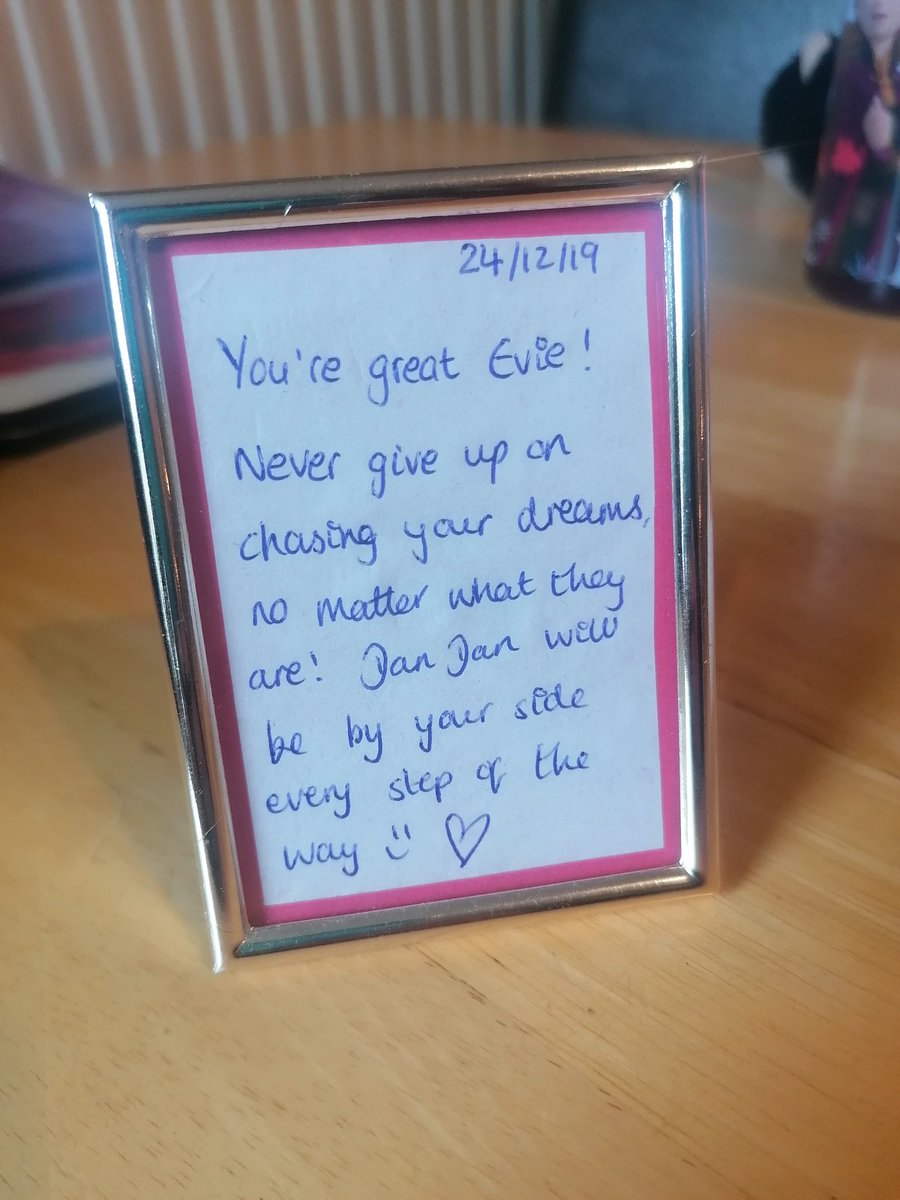 24/12/19
You're great Evie!
Never give up on
chasing your dreams,
no matter what they
are! Dan Dan will
be by your side
every step of the
way :) ♡